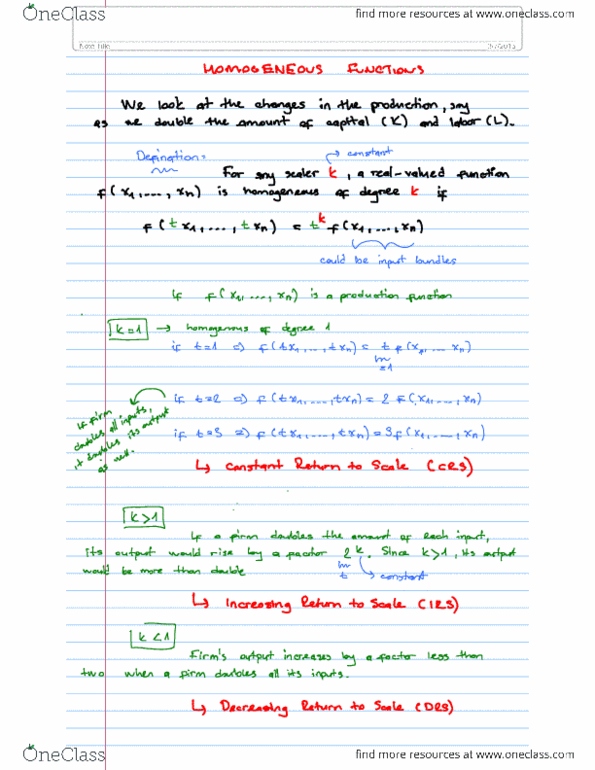 OneClass
find more resources at www.oneclass.com
Note Title
HOMOGENEOUS FUNCTIONS
We look at the changes in the production, say
as we double the amount of capital (K) and labor (L).
Defination:
constant
For any scaler k, a real-valued function
f(x1,...,xn) is homogeneous of degree k if
f(tx1,...,txn) = t^k f(x1,...,xn)
could be input bundles
If f(x1,...,xn) is a production function
k=1 → homogenous of degree 1
if t=1 ⇒ f(tx1,...,txn) = t f(x1,... xn)
=1
if t=2 ⇒ f(tx1,...,txn) = 2 f(x1,...,xn)
If firm
doubles all inputs,
it doubles its output
as well.
if t=3 ⇒ f(tx1,...,txn) = 3f(x1,...,xn)
↳ Constant Return to Scale (CRS)
k>1
If a firm doubles the amount of each input,
its output would rise by a factor 2^k. Since k>1, its output
would be more than double
t
constant
↳ Increasing Return to Scale (IRS)
k<1
Firm's output increases by a factor less than
two when a firm doubles all its inputs.
↳ Decreasing Return to Scale (DRS)
OneClass
find more resources at www.oneclass.com